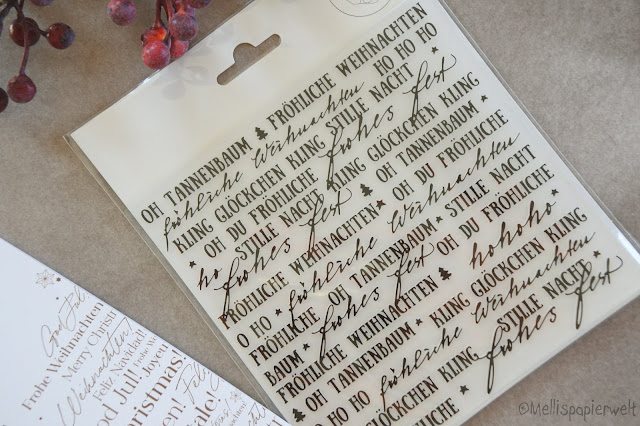 OH TANNENBAUM FRÖHLICHE WEIHNACHTEN
fröhliche Weihnachten HO HO HO
KLING GLÖCKCHEN KLING STILLE NACHT
OH DU FRÖHLICHE frohes fest
STILLE NACHT KLING GLÖCKCHEN KLING
ho frohes fest OH TANNENBAUM
FRÖHLICHE WEIHNACHTEN OH DU FRÖHLICHE
O HO fröhliche Weihnachten
FRÖHLICHE OH TANNENBAUM STILLE NACHT
BAUM frohes fest OH DU FRÖHLICHE
FRÖHLICHE WEIHNACHTEN hohoho
OH TANNENBAUM KLING GLÖCKCHEN KLING
HO HO fröhliche Weihnachten
GLÖCKCHEN KLING STILLE NACHT
FRÖHLICHE frohes fest
God Jul
Frohe Weihnachten
Merry Christ
Weihnachten
Feliz Navidad
God Jul!
Joyeu
Christmas!
©Mellispapierwelt